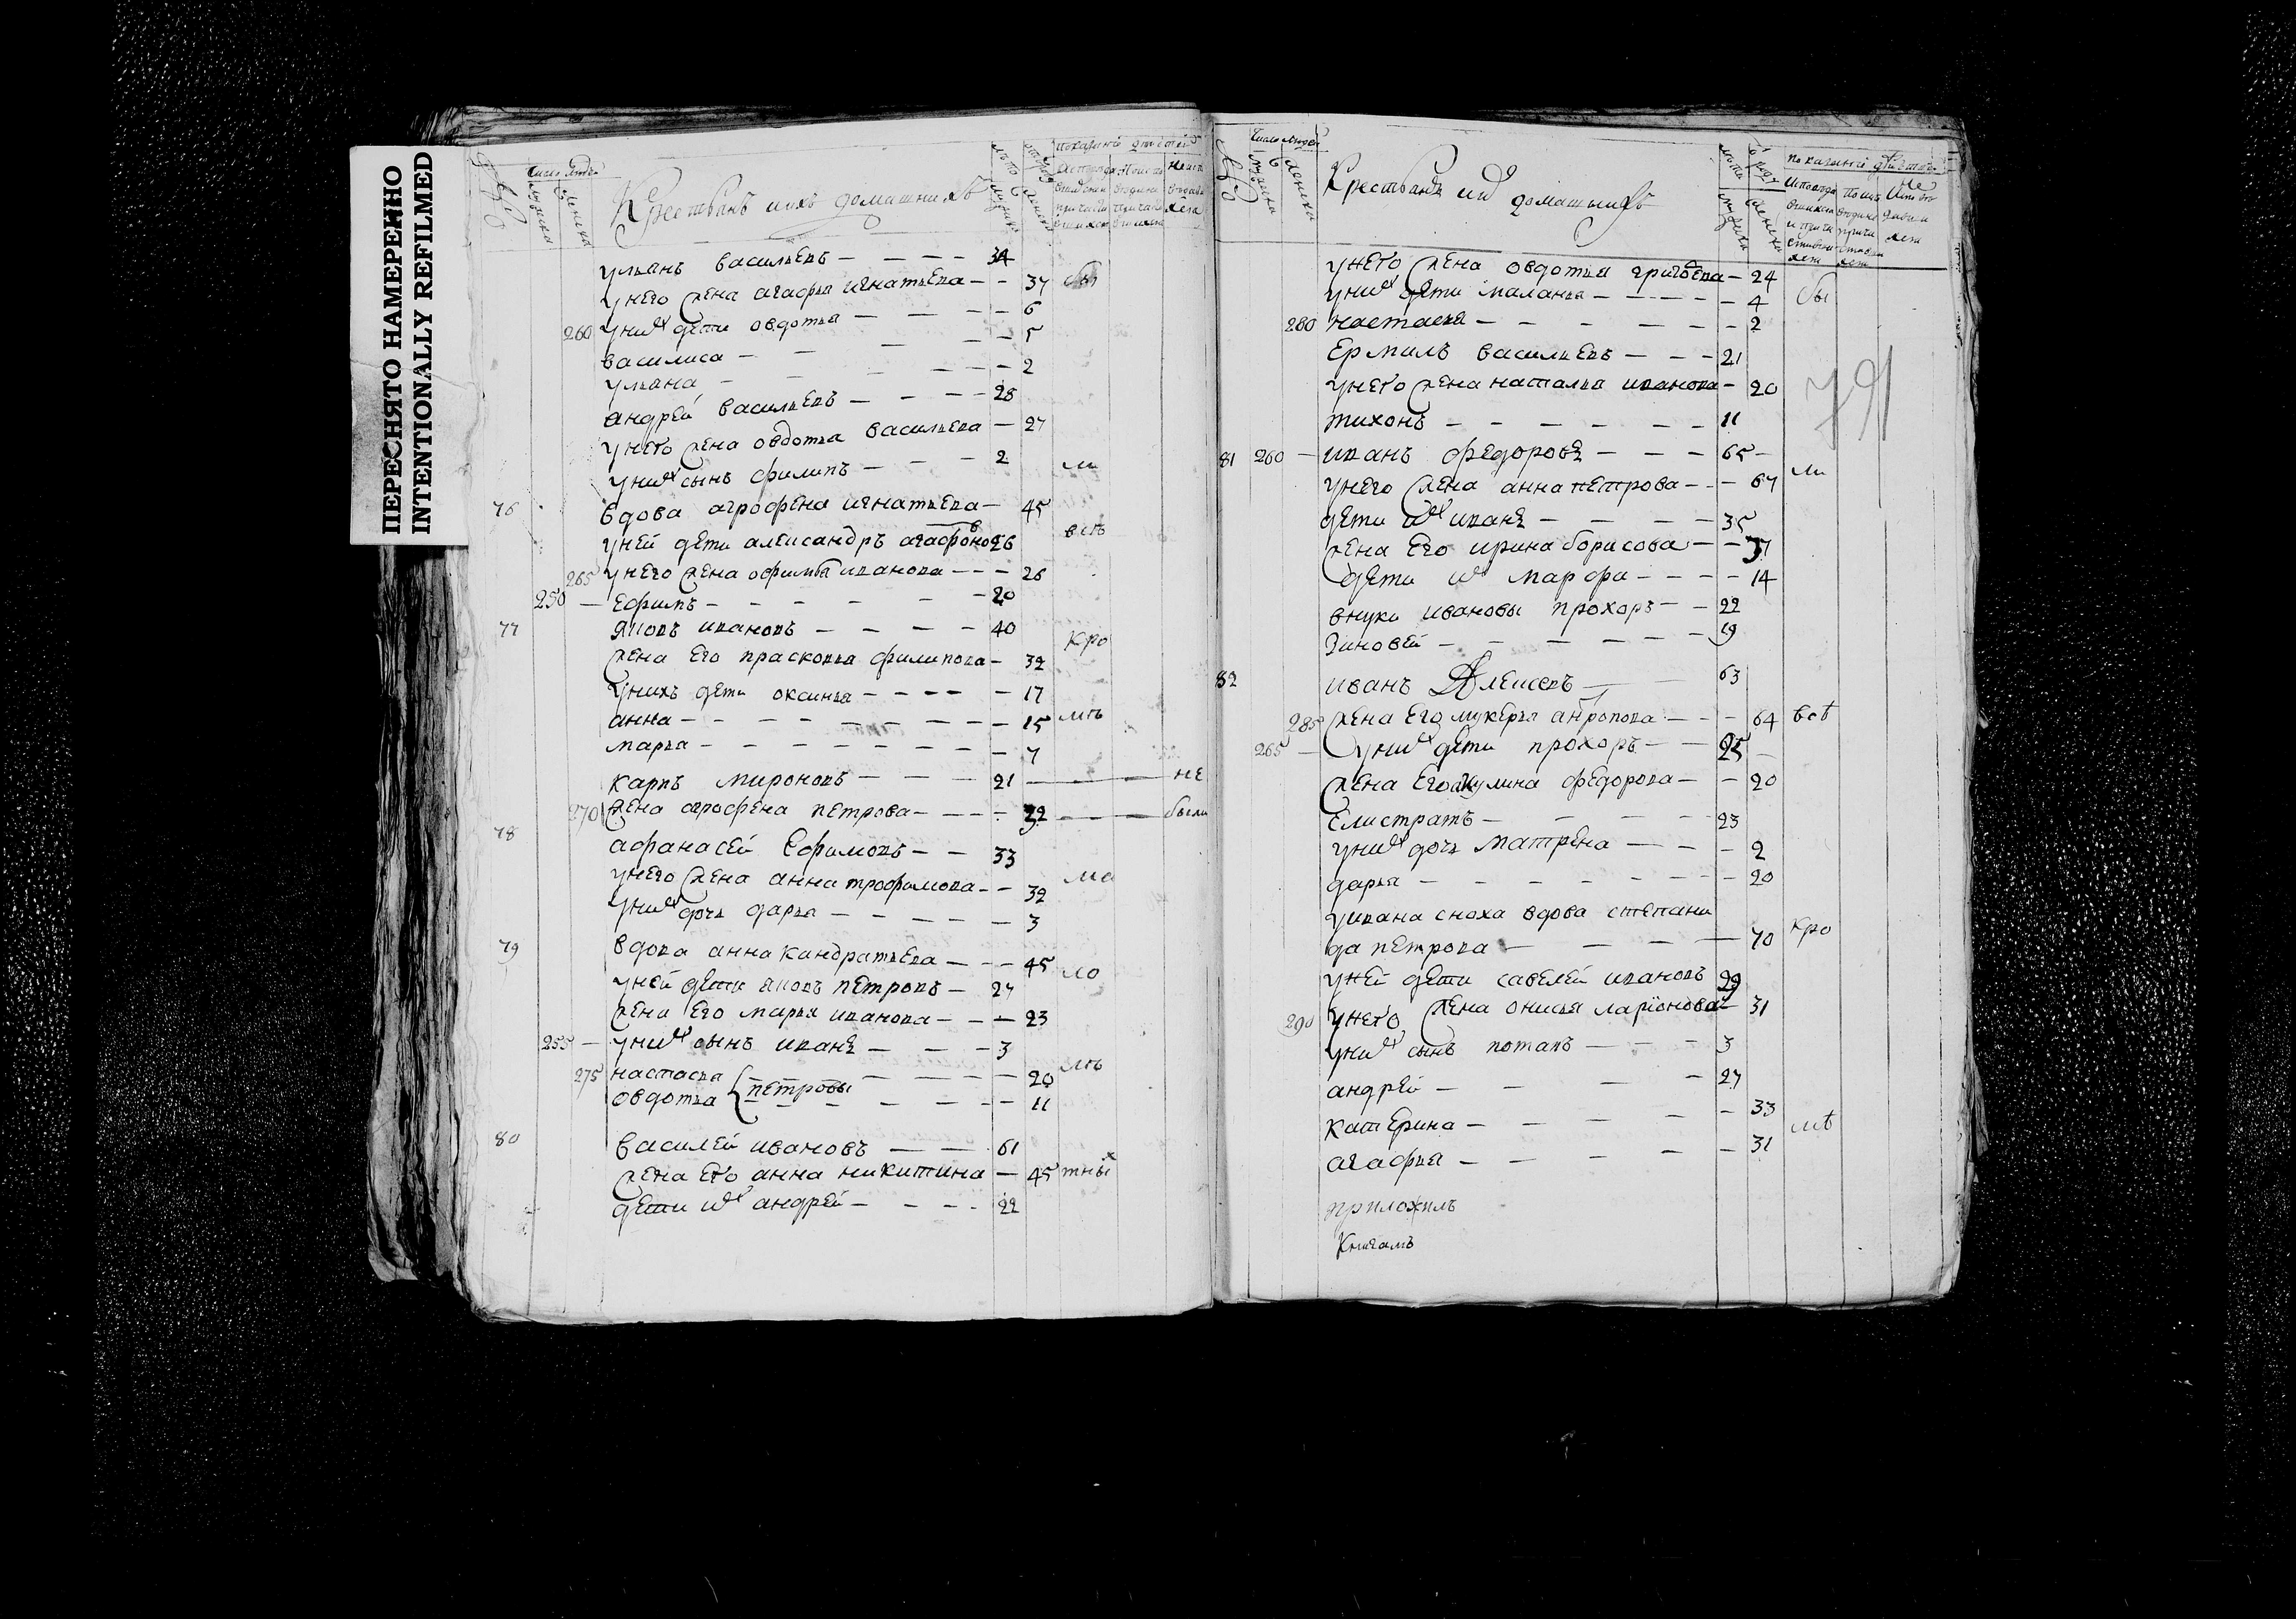 ПЕРЕСНЯТО НАМЕРЕННО
INTENTIONALLY REFILMED
Число людей
Крестьянъ ихъ домашнихъ
ульянъ васильевъ 34
унего жена агафья игнатьева 37 бы
260 унихъ дети овдотья 6
василиса 5
ульяна 2
андрей васильевъ 28
унего жена овдотья васильева 27
унихъ сынъ филипъ 2 ли
76 вдова агрофена игнатьева 45
уней дети александръ агафоновъ 26 всъ
265 унего жена офимья иванова 26
250 Ефимъ 20
77 яковъ ивановъ 40
жена его прасковья филипова 32 кро
унихъ дети оксинья 17
анна 15 мъ
марья 7
карпъ мироновъ 21 не
270 жена агрофена петрова 22 были
78 афанасей Ефимовъ 33
унего жена анна трофимова 32 ма
унихъ дочь дарья 3
79 вдова анна кандратьева 45 ло
уней дети яковъ петровъ 27
жена его марья иванова 23
255 унихъ сынъ иванъ 3
275 настасья 20 лъ
овдотья петровы 11
80 василей ивановъ 61
жена его анна никитина 45 тных
дети ихъ андрей 22
Число людей
Крестьянъ ихъ домашнихъ
унего жена овдотья григоева 24
унихъ дети маланья 4 бы
280 настасья 2
Ермилъ васильевъ 21
унего жена наталья иванова 20
79
тихонъ 11
81 260 иванъ федоровъ 65
унего жена анна петрова 67 ли
дети ихъ иванъ 35
жена его ирина борисова 37
дети ихъ марфа 14
внуки ивановы прохоръ 22
Зиновей 19
82 иванъ Алексевъ 63
285 жена его лукерья антропова 64 всѣ
265 унихъ дети прохоръ 25
жена его акулина федорова 20
Елистратъ 23
унихъ дочь матрена 2
дарья 20
уивана сноха вдова степани
да петрова 70 кро
уней дети савелей ивановъ 29
290 унего жена онисья ларионова 31
унихъ сынъ потапъ 3
андрей 27
катерина 33
агафья 31 мѣ
приложилъ
Книгамъ